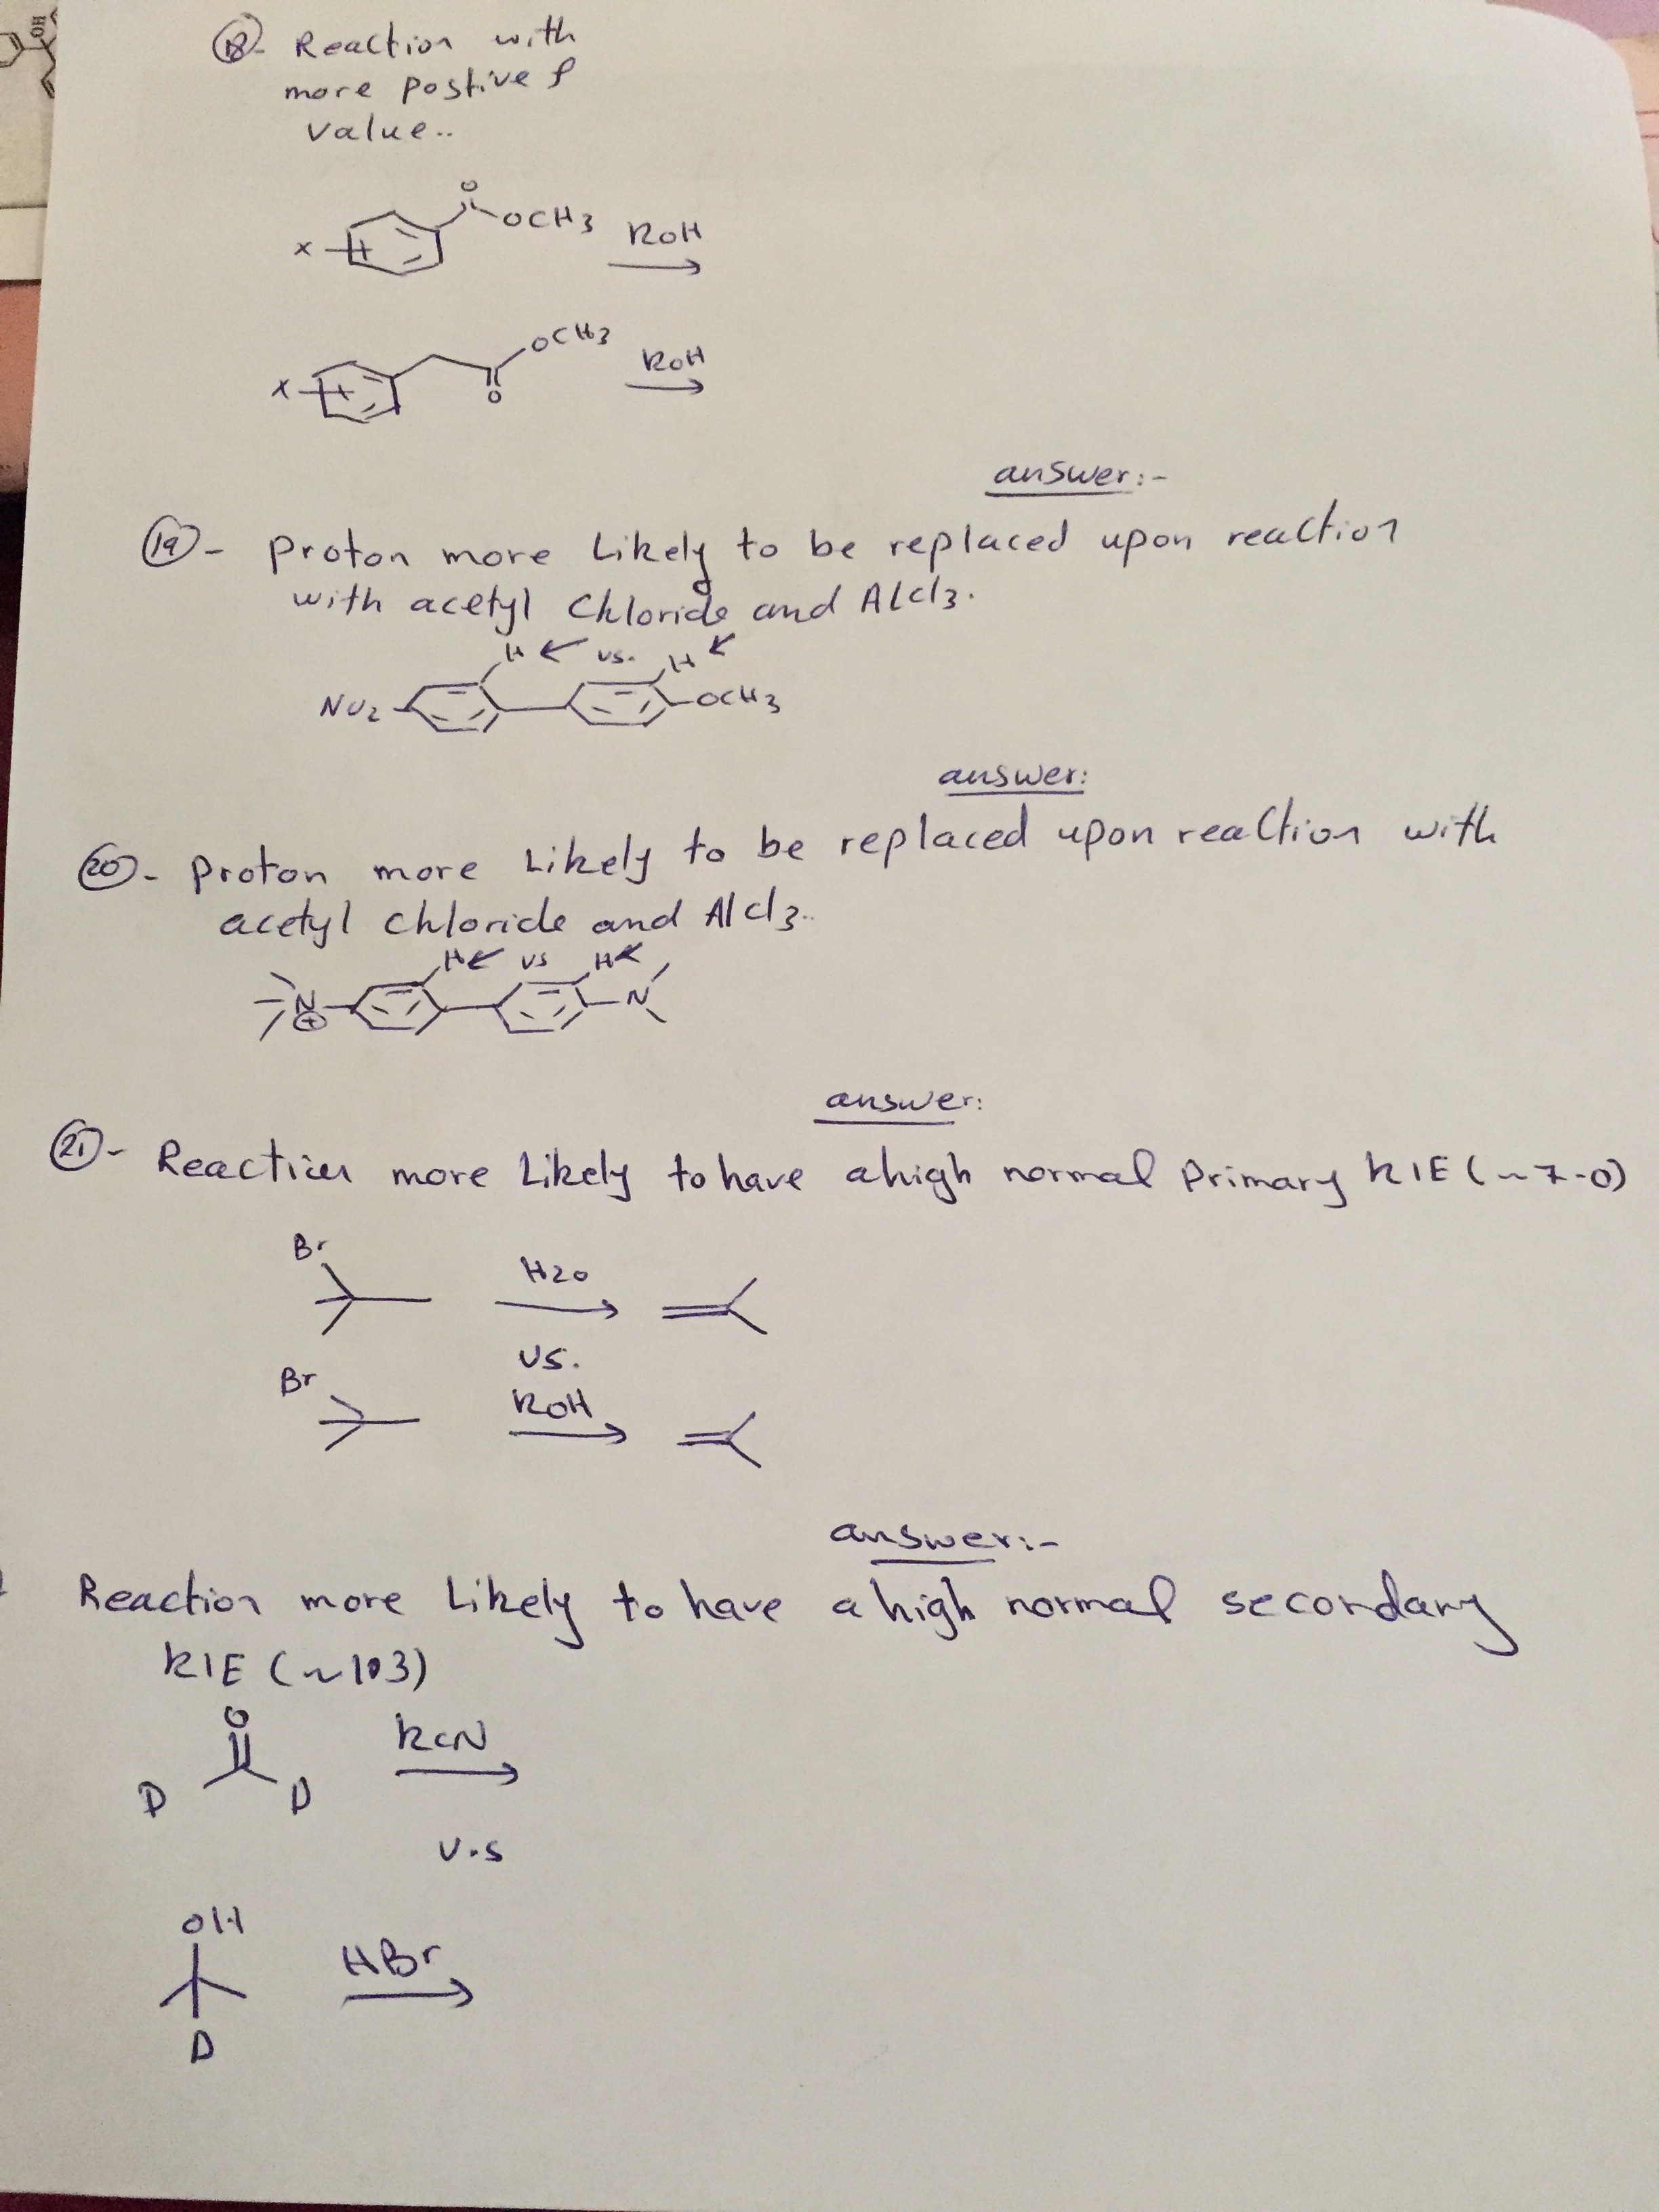 18- Reaction with
more postive ρ
value..
O
OCH3
KOH
X
OCH3
KOH
X
O
answer:-
19- Proton more Likely to be replaced upon reaction
with acetyl Chloride and AlCl3.
H vs. H
NO2 OCH3
answer:
20- Proton more Likely to be replaced upon reaction with
acetyl chloride and AlCl3..
H vs H
N⊕ N
answer:
21- Reaction more Likely to have a high normal Primary KIE (~7-0)
Br
H2O
vs.
Br
KOH
answer:-
Reaction more Likely to have a high normal secondary
KIE (~103)
O
KCN
D D
V.S
OH
HBr
D
OH